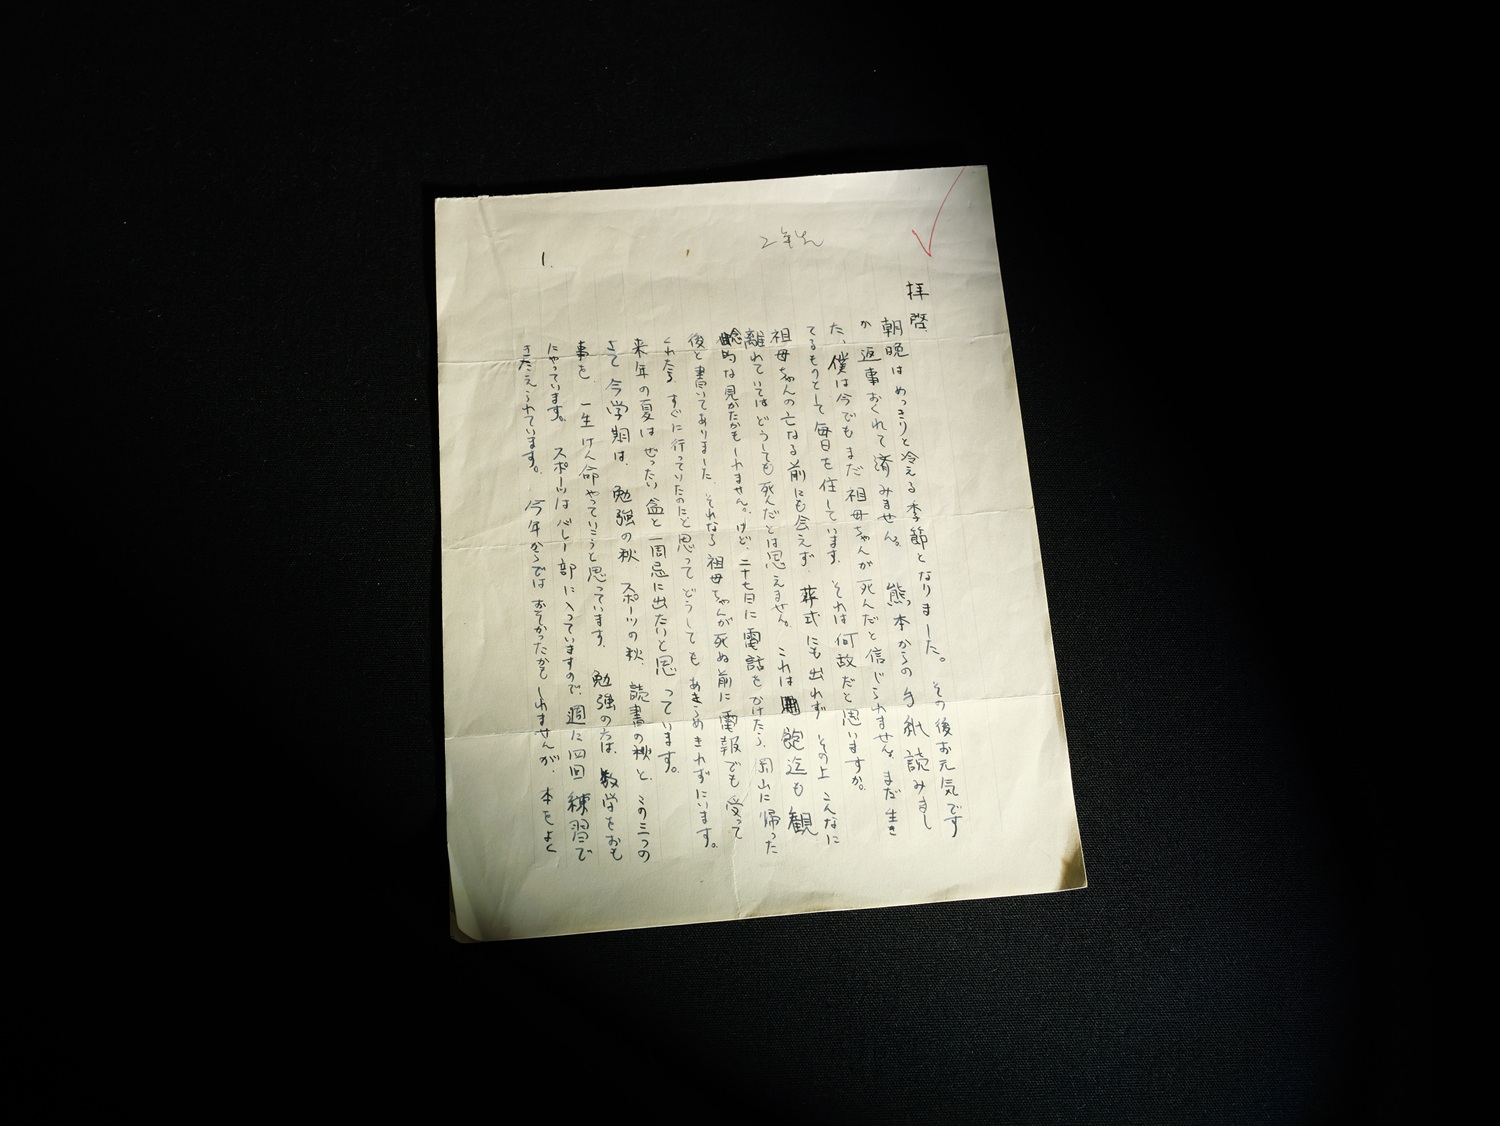 拝啓
朝晩はめっきりと冷える季節となりました。その後お元気です
か 返事おくれて済みません。熊本からの手紙読みまし
た、僕は今でもまだ祖母ちゃんが死んだと信じられません、まだ生き
てるものとして毎日を住しています、それは何故だと思いますか。
祖母ちゃんの亡なる前にも会えず、葬式にも出れず その上こんなに
離れていてはどうしても死んだとは思えません。これは 飽迄も観
念的な見かたかもしれません。けど、二十七日に電話をかけたら、岡山に帰った
後と書いてありました、それなら祖母ちゃんが死ぬ前に電報でも受って
くれたら、すぐに行っていたのにと思ってどうしてもあきらめきれずにいます。
来年の夏はぜったい盆と一周忌に出たいと思っています。
さて今学期は、勉強の秋 スポーツの秋、読書の秋と、この三つの
事を、一生けん命やっていこうと思っています、勉強の方は、数学をおも
にやっています。スポーツはバレー部に入っていますので、週に四回練習で
きたえられています。今年からではおそかったかもしれませんが、本をよく
1.